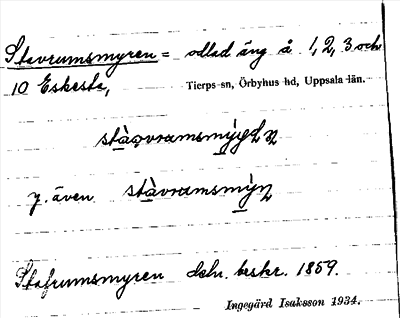 Stavrumsmyren = odlad äng å 1, 2, 3 och
10 Eskesta,
Tierps sn, Örbyhus hd, Uppsala län.
y. även
Stafrumsmyren dshr. beskr. 1859.
Ingegärd Isaksson 1934.